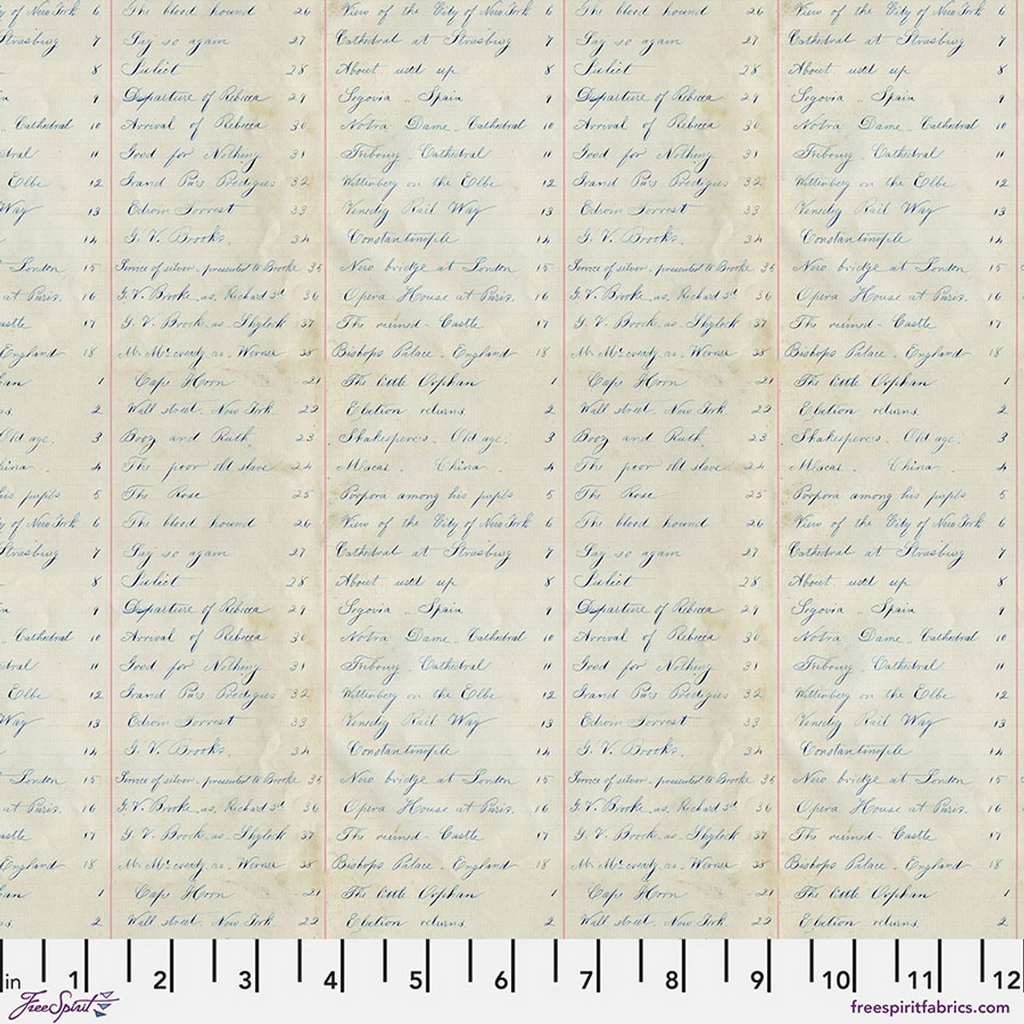 y of New York 6 The blood hound 26 View of the City of New York 6 The blood hound 26 View of the City of New York 6
Strasburg 7 Say so again 27 Cathedral at Strasburg 7 Say so again 27 Cathedral at Strasburg 7
8 Juliet 28 About used up 8 Juliet 28 About used up 8
9 Departure of Rebecca 29 Segovia .. Spain 9 Departure of Rebecca 29 Segovia .. Spain 9
.. Cathedral 10 Arrival of Rebecca 30 Notra Dame .. Cathedral 10 Arrival of Rebecca 30 Notra Dame .. Cathedral 10
dral 11 Good for Nothing 31 Fribourg . Cathedral 11 Good for Nothing 31 Fribourg . Cathedral 11
Elbe 12 Grand Pa's Prodegies 32 Wittenberg on the Elbe 12 Grand Pa's Prodegies 32 Wittenberg on the Elbe 12
Way 13 Edwin Forrest 33 Venedig Rail Way 13 Edwin Forrest 33 Venedig Rail Way 13
14 G. V. Brooks. 34 Constantinople 14 G. V. Brooks. 34 Constantinople 14
London 15 Service of silver. presented to Brooke 35 New bridge at London 15 Service of silver. presented to Brooke 35 New bridge at London 15
at Paris. 16 G. V. Brooke. as. Richard 3d 36 Opera House at Paris. 16 G. V. Brooke. as. Richard 3d 36 Opera House at Paris. 16
astle 17 G. V. Brook. as. Shylock 37 The ruined - Castle 17 G. V. Brook. as. Shylock 37 The ruined - Castle 17
England 18 Mr. McCready. as. Werner 38 Bishops Palace . England 18 Mr. McCready. as. Werner 38 Bishops Palace . England 18
han 1 Cape Horn 21 The little Orphan 1 Cape Horn 21 The little Orphan 1
ns. 2 Wall street. New York 22 Election returns. 2 Wall street. New York 22 Election returns. 2
Old age. 3 Booz and Ruth. 23 Shakespere's . Old age. 3 Booz and Ruth. 23 Shakespere's . Old age. 3
hina . 4 The poor old slave 24 Macai . China . 4 The poor old slave 24 Macai . China . 4
his pupils 5 The Rose 25 Porpora among his pupils 5 The Rose 25 Porpora among his pupils 5
y of New York 6 The blood hound 26 View of the City of New York 6 The blood hound 26 View of the City of New York 6
Strasburg 7 Say so again 27 Cathedral at Strasburg 7 Say so again 27 Cathedral at Strasburg 7
8 Juliet 28 About used up 8 Juliet 28 About used up 8
9 Departure of Rebecca 29 Segovia .. Spain 9 Departure of Rebecca 29 Segovia .. Spain 9
.. Cathedral 10 Arrival of Rebecca 30 Notra Dame .. Cathedral 10 Arrival of Rebecca 30 Notra Dame .. Cathedral 10
dral 11 Good for Nothing 31 Fribourg . Cathedral 11 Good for Nothing 31 Fribourg . Cathedral 11
Elbe 12 Grand Pa's Prodegies 32 Wittenberg on the Elbe 12 Grand Pa's Prodegies 32 Wittenberg on the Elbe 12
Way 13 Edwin Forrest 33 Venedig Rail Way 13 Edwin Forrest 33 Venedig Rail Way 13
14 G. V. Brooks. 34 Constantinople 14 G. V. Brooks. 34 Constantinople 14
London 15 Service of silver. presented to Brooke 35 New bridge at London 15 Service of silver. presented to Brooke 35 New bridge at London 15
at Paris. 16 G. V. Brooke. as. Richard 3d 36 Opera House at Paris. 16 G. V. Brooke. as. Richard 3d 36 Opera House at Paris. 16
astle 17 G. V. Brook. as. Shylock 37 The ruined - Castle 17 G. V. Brook. as. Shylock 37 The ruined - Castle 17
England 18 Mr. McCready. as. Werner 38 Bishops Palace . England 18 Mr. McCready. as. Werner 38 Bishops Palace . England 18
han 1 Cape Horn 21 The little Orphan 1 Cape Horn 21 The little Orphan 1
ns. 2 Wall street. New York 22 Election returns. 2 Wall street. New York 22 Election returns. 2
in 1 2 3 4 5 6 7 8 9 10 11 12
FreeSpirit
freespiritfabrics.com